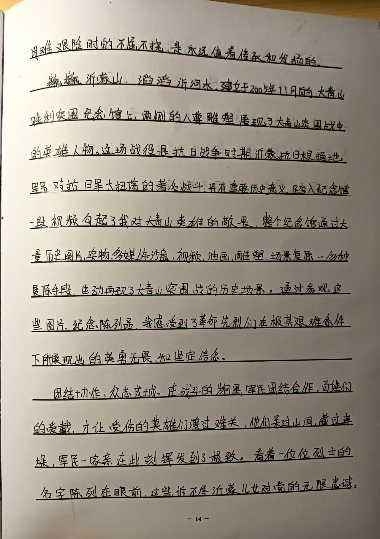 困难艰险时的不屈不挠,是永远值得传承和发扬的。
巍巍沂蒙山,滔滔沂河水,建于2005年11月的大青山
胜利突围纪念馆上,两侧的人凿雕塑展现了大青山突围战中
的英雄人物。这场战役是抗日战争中期沂蒙抗日根据地
军民对抗日军大扫荡的著名战斗,具有重要历史意义。步入纪念馆
一段视频勾起了我对大青山英雄的敬畏。整个纪念馆通过大
量历史图片,实物,多媒体沙盘,视频,油画,雕塑,场景复原…多种
展陈手段,生动再现了大青山突围战的历史场景。通过参观这
些图片,纪念陈列品,我感受到了革命先烈们在极其艰难条件
下所展现出的英勇无畏和坚定信念。
团结协作,众志成城。在战斗的时候军民团结合作,百姓们
的爱戴,才让受伤的英雄们渡过难关,他们
军民一家亲在此刻挥发到了极致。看着一位位烈士的
名字陈列在眼前,这些诉不尽沂蒙儿女对党的无限忠诚,
- 14 -